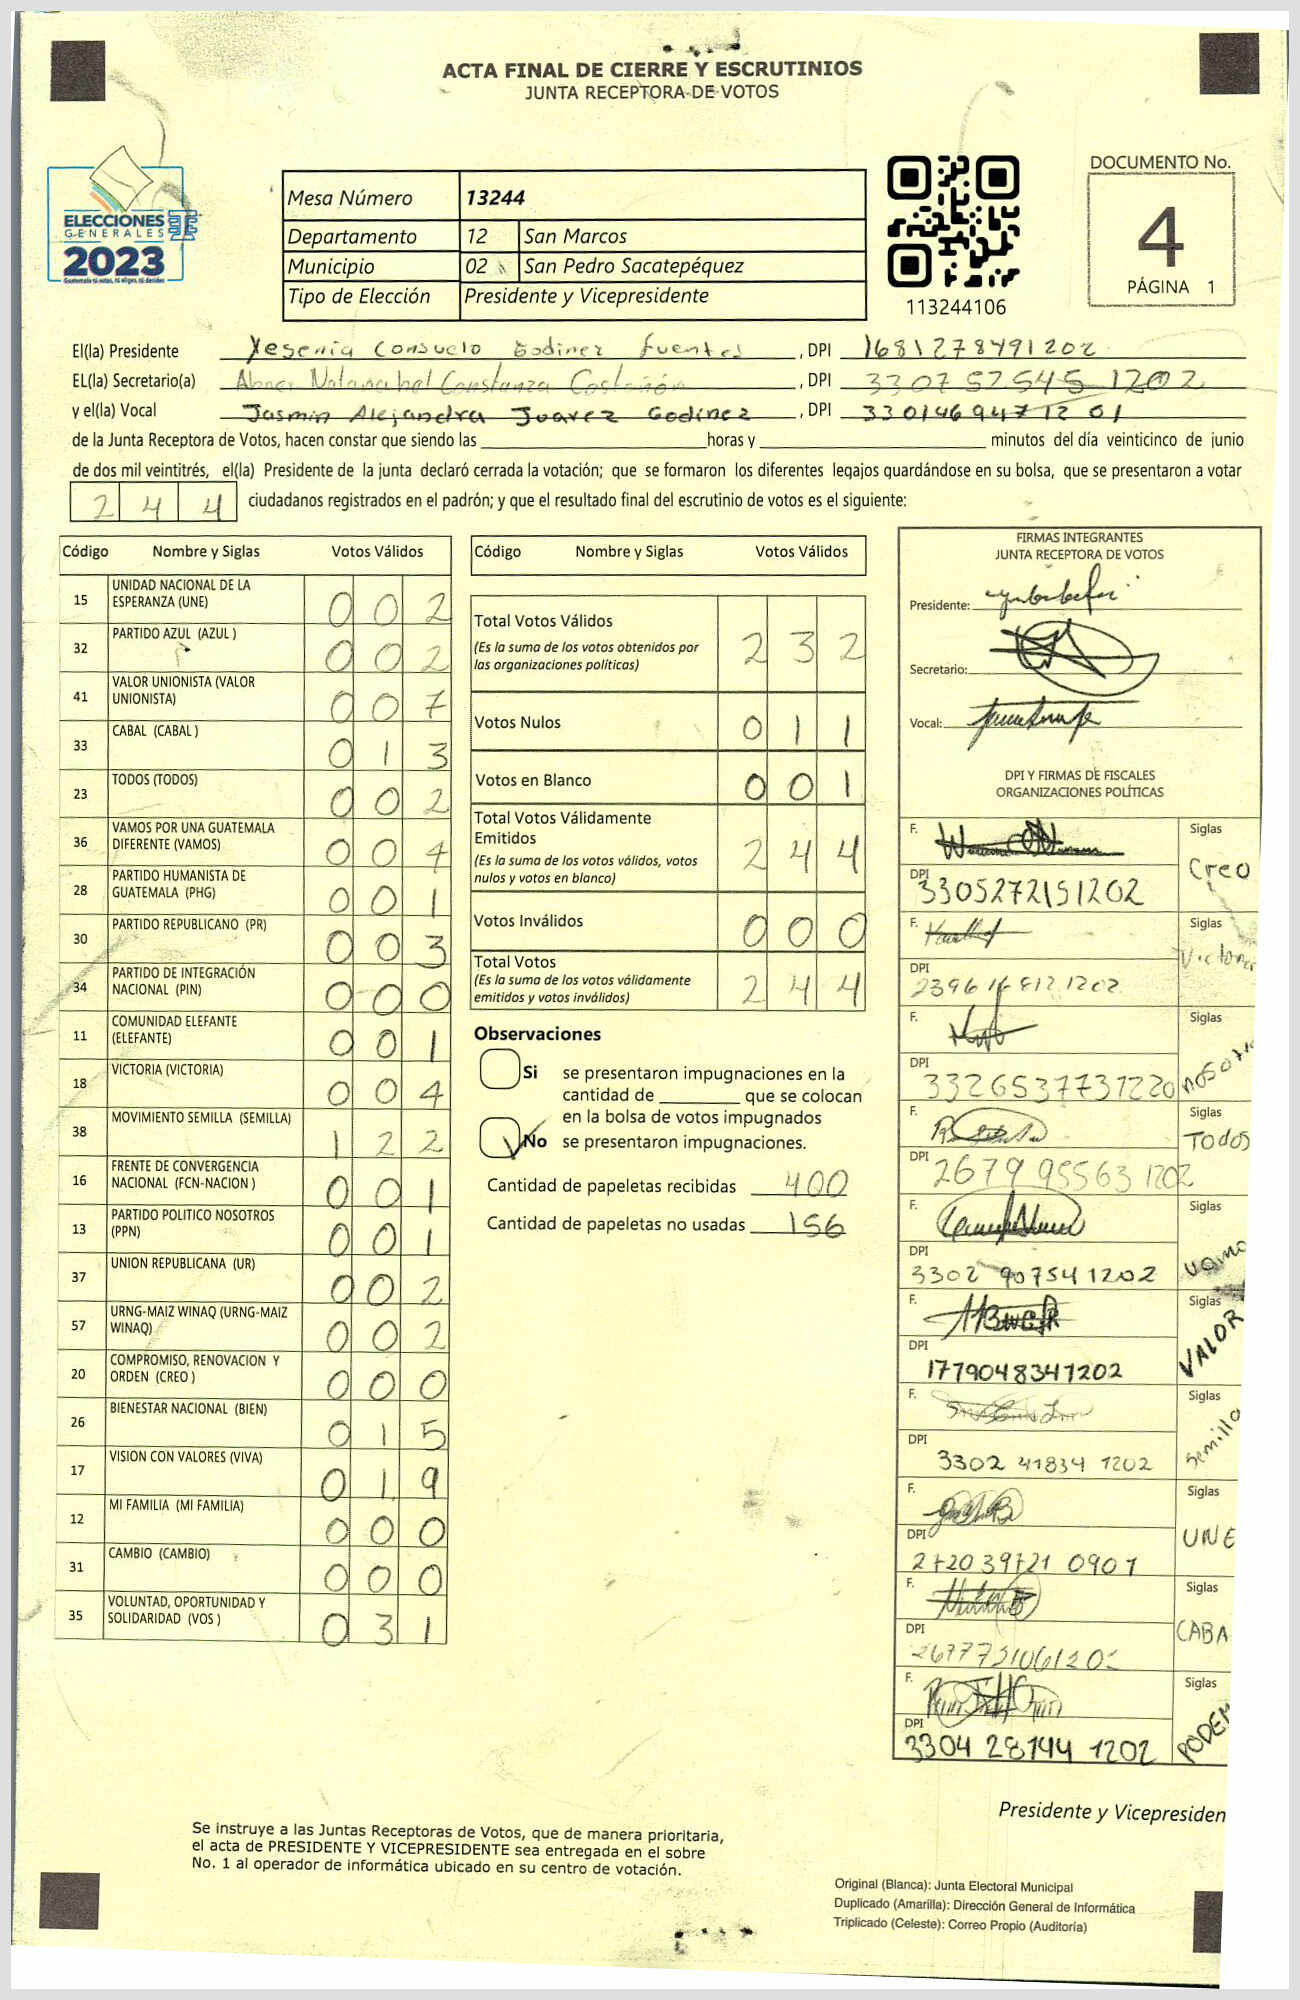 ACTA FINAL DE CIERRE Y ESCRUTINIOS
JUNTA RECEPTORA DE VOTOS
ELECCIONES
GENERALES
2023
Guatemala tú votas, tú eliges, tú decides
Mesa Número 13244
Departamento 12 San Marcos
Municipio 02 San Pedro Sacatepéquez
Tipo de Elección Presidente y Vicepresidente
113244106
DOCUMENTO No.
4
PÁGINA 1
El(la) Presidente Yesenia Consuelo Godinez Fuentes, DPI 1681278491202
EL(la) Secretario(a) Abner Natanahel Constanza, DPI 3307575451202
y el(la) Vocal Jasmin Alejandra Juarez Godinez, DPI 3301469471201
de la Junta Receptora de Votos, hacen constar que siendo las horas y minutos del día veinticinco de junio
de dos mil veintitrés, el(la) Presidente de la junta declaró cerrada la votación; que se formaron los diferentes legajos guardándose en su bolsa, que se presentaron a votar
244 ciudadanos registrados en el padrón; y que el resultado final del escrutinio de votos es el siguiente:
Código Nombre y Siglas Votos Válidos
15 UNIDAD NACIONAL DE LA ESPERANZA (UNE) 002
32 PARTIDO AZUL (AZUL ) 002
41 VALOR UNIONISTA (VALOR UNIONISTA) 007
33 CABAL (CABAL ) 013
23 TODOS (TODOS) 002
36 VAMOS POR UNA GUATEMALA DIFERENTE (VAMOS) 004
28 PARTIDO HUMANISTA DE GUATEMALA (PHG) 001
30 PARTIDO REPUBLICANO (PR) 003
34 PARTIDO DE INTEGRACIÓN NACIONAL (PIN) 000
11 COMUNIDAD ELEFANTE (ELEFANTE) 001
18 VICTORIA (VICTORIA) 004
38 MOVIMIENTO SEMILLA (SEMILLA) 122
16 FRENTE DE CONVERGENCIA NACIONAL (FCN-NACION ) 001
13 PARTIDO POLITICO NOSOTROS (PPN) 001
37 UNION REPUBLICANA (UR) 002
57 URNG-MAIZ WINAQ (URNG-MAIZ WINAQ) 002
20 COMPROMISO, RENOVACION Y ORDEN (CREO ) 000
26 BIENESTAR NACIONAL (BIEN) 015
17 VISION CON VALORES (VIVA) 019
12 MI FAMILIA (MI FAMILIA) 000
31 CAMBIO (CAMBIO) 000
35 VOLUNTAD, OPORTUNIDAD Y SOLIDARIDAD (VOS ) 031
Código Nombre y Siglas Votos Válidos
Total Votos Válidos 232
(Es la suma de los votos obtenidos por
las organizaciones políticas)
Votos Nulos 011
Votos en Blanco 001
Total Votos Válidamente
Emitidos 244
(Es la suma de los votos válidos, votos
nulos y votos en blanco)
Votos Inválidos 000
Total Votos 244
(Es la suma de los votos válidamente
emitidos y votos inválidos)
Observaciones
Si se presentaron impugnaciones en la
cantidad de que se colocan
en la bolsa de votos impugnados
No se presentaron impugnaciones.
Cantidad de papeletas recibidas 400
Cantidad de papeletas no usadas 156
FIRMAS INTEGRANTES
JUNTA RECEPTORA DE VOTOS
Presidente:
Secretario:
Vocal:
DPI Y FIRMAS DE FISCALES
ORGANIZACIONES POLÍTICAS
F. Siglas
Creo
DPI 3305272151202
F. Siglas
Victoria
DPI
F. Siglas
DPI 3326537731220
F. Siglas
Todos
DPI 2679 95563 1202
F. Siglas
vamo
DPI
3302 90754 1202
F. Siglas
VALOR
DPI
1779048341202
F. Siglas
semilla
DPI
3302 41834 1202
F. Siglas
UNE
DPI
2720 39721 0901
F. Siglas
CABA
DPI
F. Siglas
PODEM
DPI
3304 28144 1202
Presidente y Vicepresiden
Se instruye a las Juntas Receptoras de Votos, que de manera prioritaria,
el acta de PRESIDENTE Y VICEPRESIDENTE sea entregada en el sobre
No. 1 al operador de informática ubicado en su centro de votación.
Original (Blanca): Junta Electoral Municipal
Duplicado (Amarilla): Dirección General de Informática
Triplicado (Celeste): Correo Propio (Auditoría)